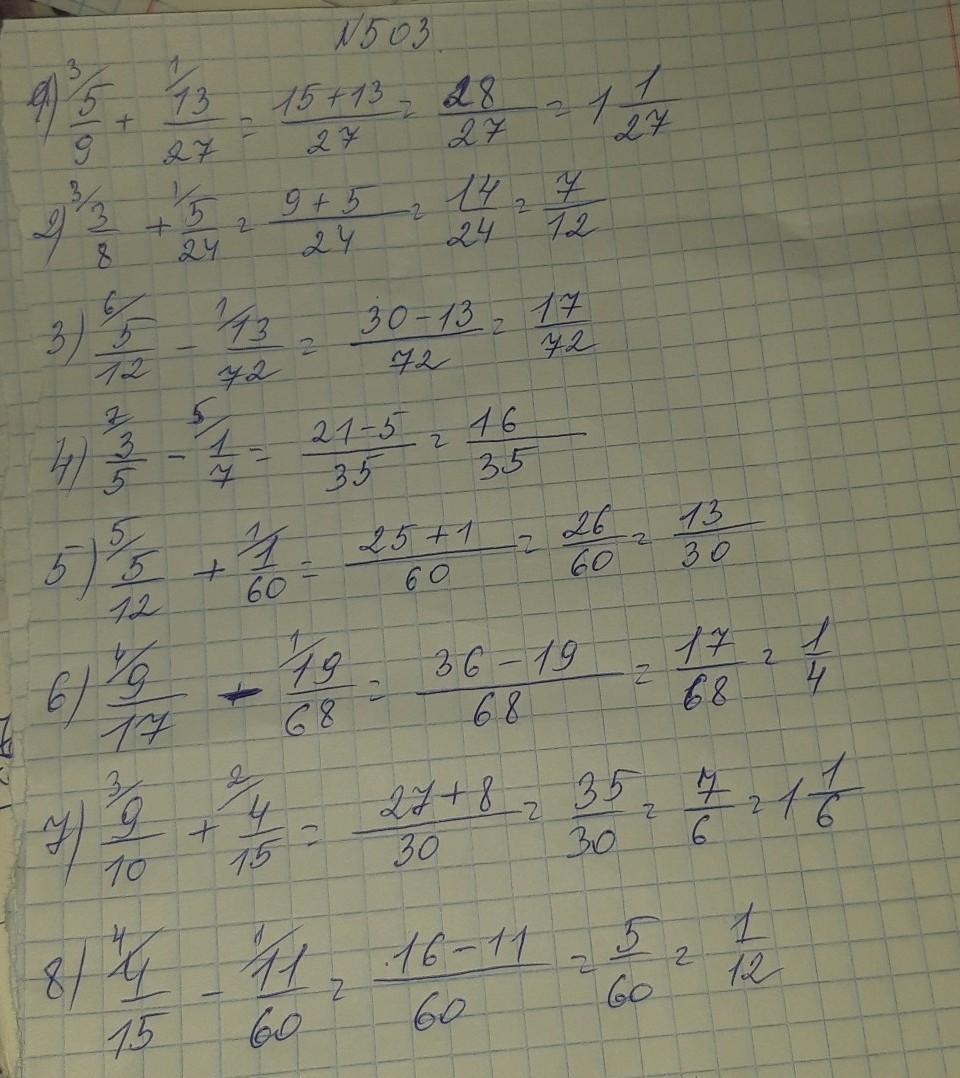 №503.
1) ³/5/9 + ¹/13/27 = 15+13/27 = 28/27 = 1 1/27
2) ³/3/8 + ¹/5/24 = 9+5/24 = 14/24 = 7/12
3) ⁶/5/12 - ¹/13/72 = 30-13/72 = 17/72
4) ⁷/3/5 - ⁵/1/7 = 21-5/35 = 16/35
5) ⁵/5/12 + ¹/1/60 = 25+1/60 = 26/60 = 13/30
6) ⁴/9/17 - ¹/19/68 = 36-19/68 = 17/68 = 1/4
7) ³/9/10 + ²/4/15 = 27+8/30 = 35/30 = 7/6 = 1 1/6
8) ⁴/4/15 - ¹/11/60 = 16-11/60 = 5/60 = 1/12